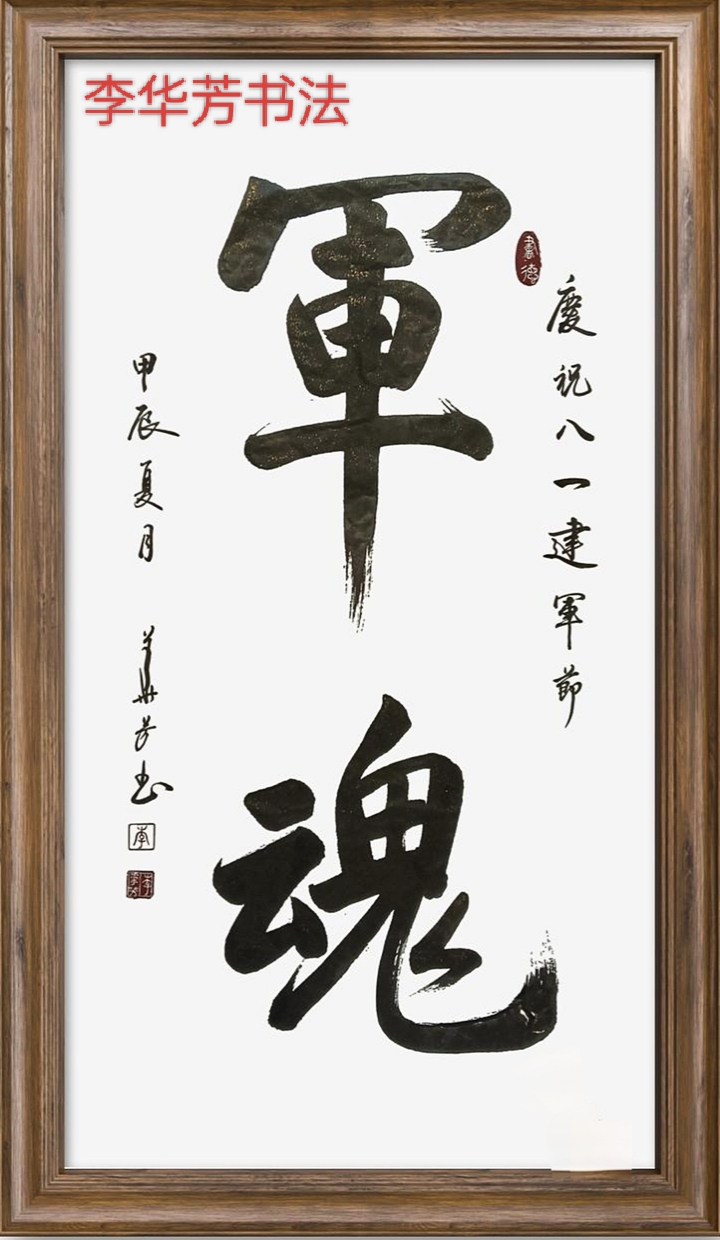 李华芳书法
慶祝八一建軍節
書德
軍魂
甲辰夏月 華芳书
李